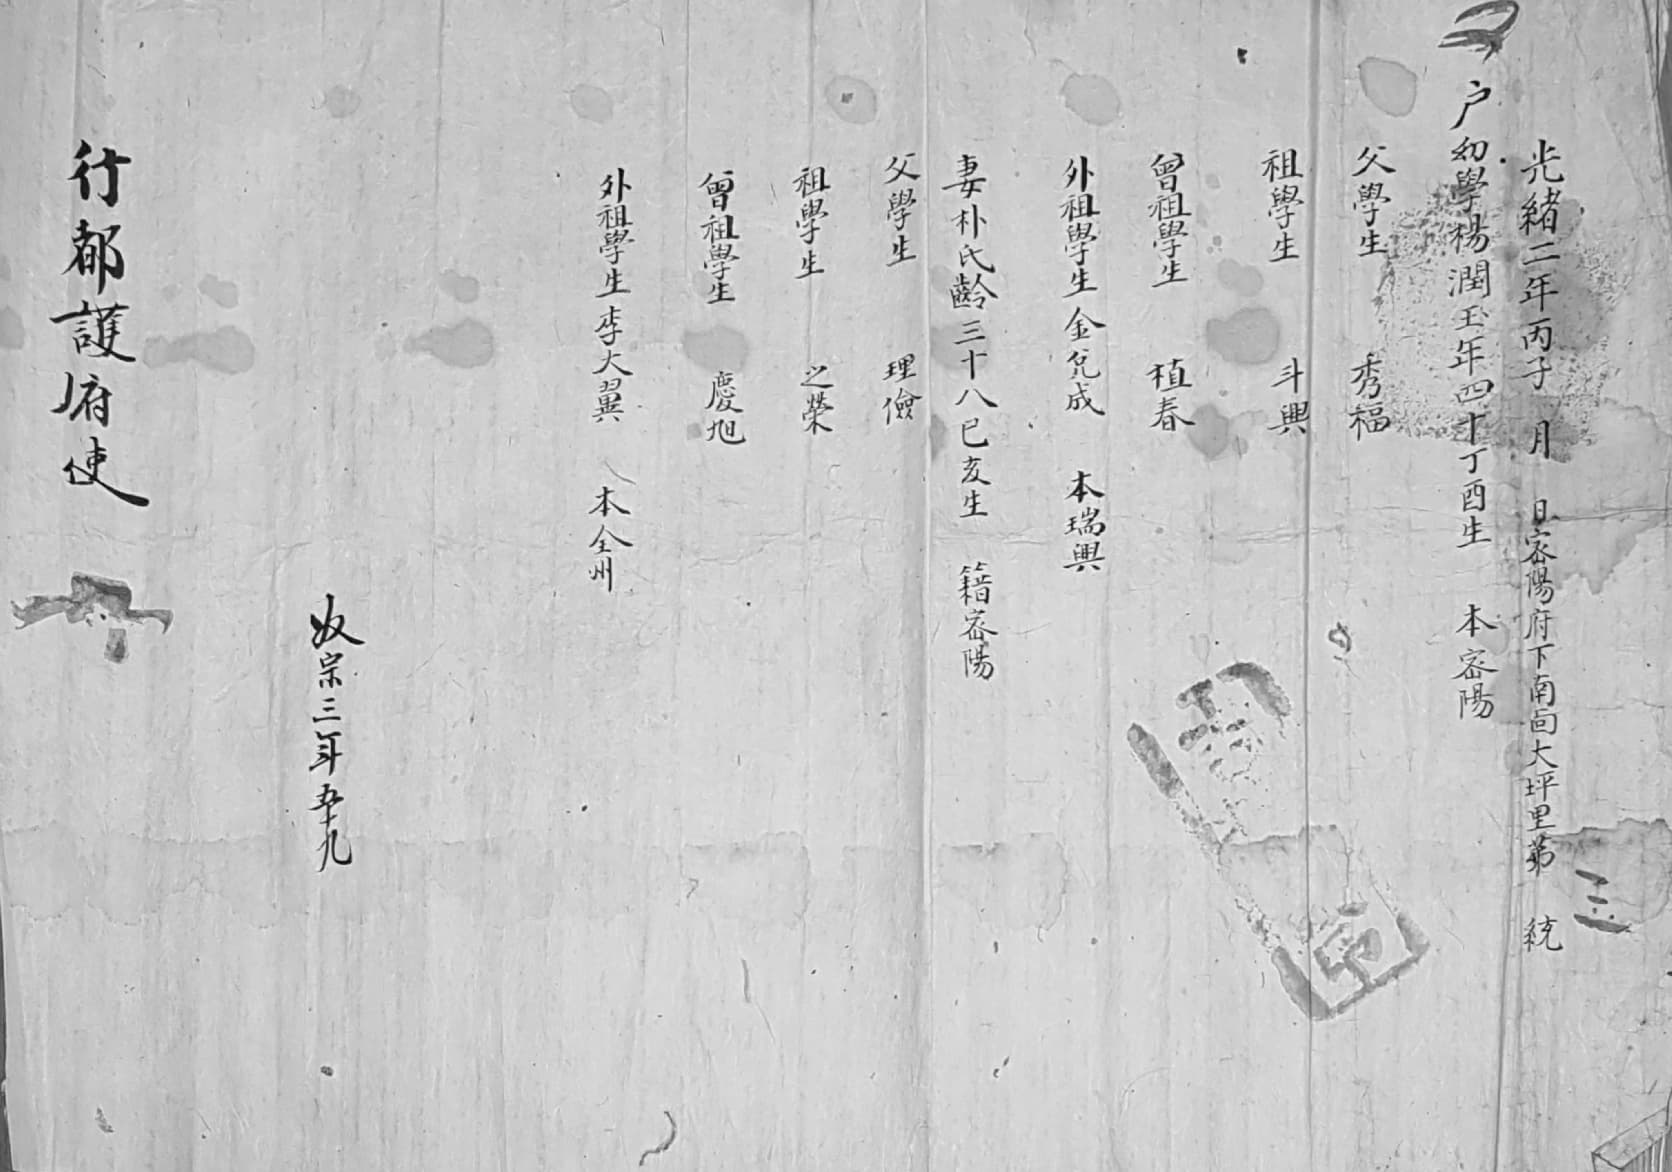 光緒二年丙子 月 日密陽府下南面大坪里第 三 統
户幼學楊潤玉年四十丁酉生 本密陽
父學生 秀福
祖學生 斗興
曾祖學生 植春
外祖學生金允成 本瑞興
妻朴氏齡三十八己亥生 籍密陽
父學生 理儉
祖學生 之榮
曾祖學生 慶旭
外祖學生李大翼 本全州
奴宗三年五十九
行都護府使